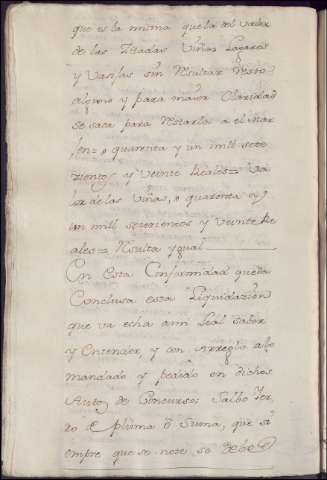 que es la misma que la del valor
de las Zitadas Viñas Lagares
y Vasijas sin Resultar Resto
alguno y para maior Claridad
se saca para Restarla a el Mar
jen = o quarenta y un mill sete
zientos y Veinte Reales = Va
lor de las Viñas, o quarenta y
un mill setezientos y Veinte Re
ales = Resulta ygual
En esta Conformidad queda
Conclusa esta Liquidazion
que va echa a mi Leal saver
y Entender, y con Arreglo a lo
mandado y pedido en dichos
Autos de Concurso: Salbo Yer
ro de pluma o suma, que si
empre que se note se debe